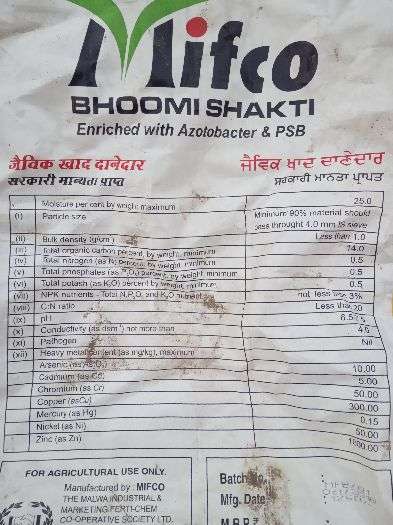 Mifco
BHOOMI SHAKTI
Enriched with Azotobacter & PSB
जैविक खाद दानेदार ਜੈਵਿਕ ਖਾਦ ਦਾਣੇਦਾਰ
सरकारी मान्यता प्राप्त ਸਰਕਾਰੀ ਮਾਨਤਾ ਪ੍ਰਾਪਤ
Moisture per cent by weight maximum 25.0
(i) Particle size Minimum 90% material should
pass throught 4.0 mm IS sieve
(ii) Bulk density (g/cm³) Less than 1.0
(iii) Total organic carbon percent, by weight, minimum 14.0
(iv) Total nitrogen (as N) percent, by weight, minimum 0.5
(v) Total phosphates (as P₂O₅) percent, by weight, minimum 0.5
(vi) Total potash (as K₂O) percent by weight, minimum 0.5
(vii) NPK nutrients - Total N,P₂O₅ and K₂O nutrient not less 3%
(viii) C:N ratio Less than 20
(ix) pH
(x) Conductivity (as dsm⁻¹) not more than
(xi) Pathogen Nil
(xii) Heavy metal content (as mg/kg), maximum
Arsenic (as As₂O₃) 10.00
Cadmium (as Cd) 5.00
Chromium (as Cr) 50.00
Copper (asCu) 300.00
Mercury (as Hg) 0.15
Nickel (as Ni) 50.00
Zinc (as Zn) 1000.00
FOR AGRICULTURAL USE ONLY.
Manufactured by : MIFCO
THE MALWA INDUSTRIAL &
MARKETING FERTI-CHEM
CO-OPERATIVE SOCIETY LTD.
Batch No.
Mfg. Date
M.R.P.